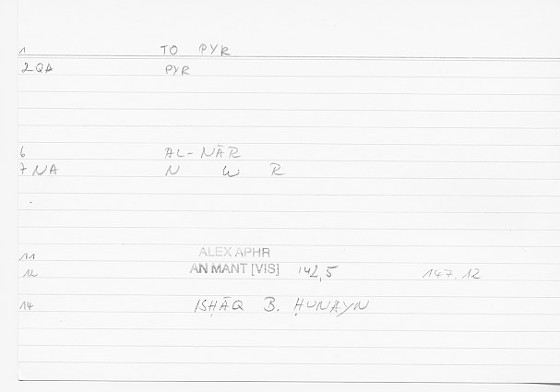 1 TO PYR
2 QA PYR
6 AL-NĀR
7 NA N W R
11 ALEX APHR
12 AN MANT [VIS] 142,5 147.12
14 ISḤĀQ B. ḤUNAYN